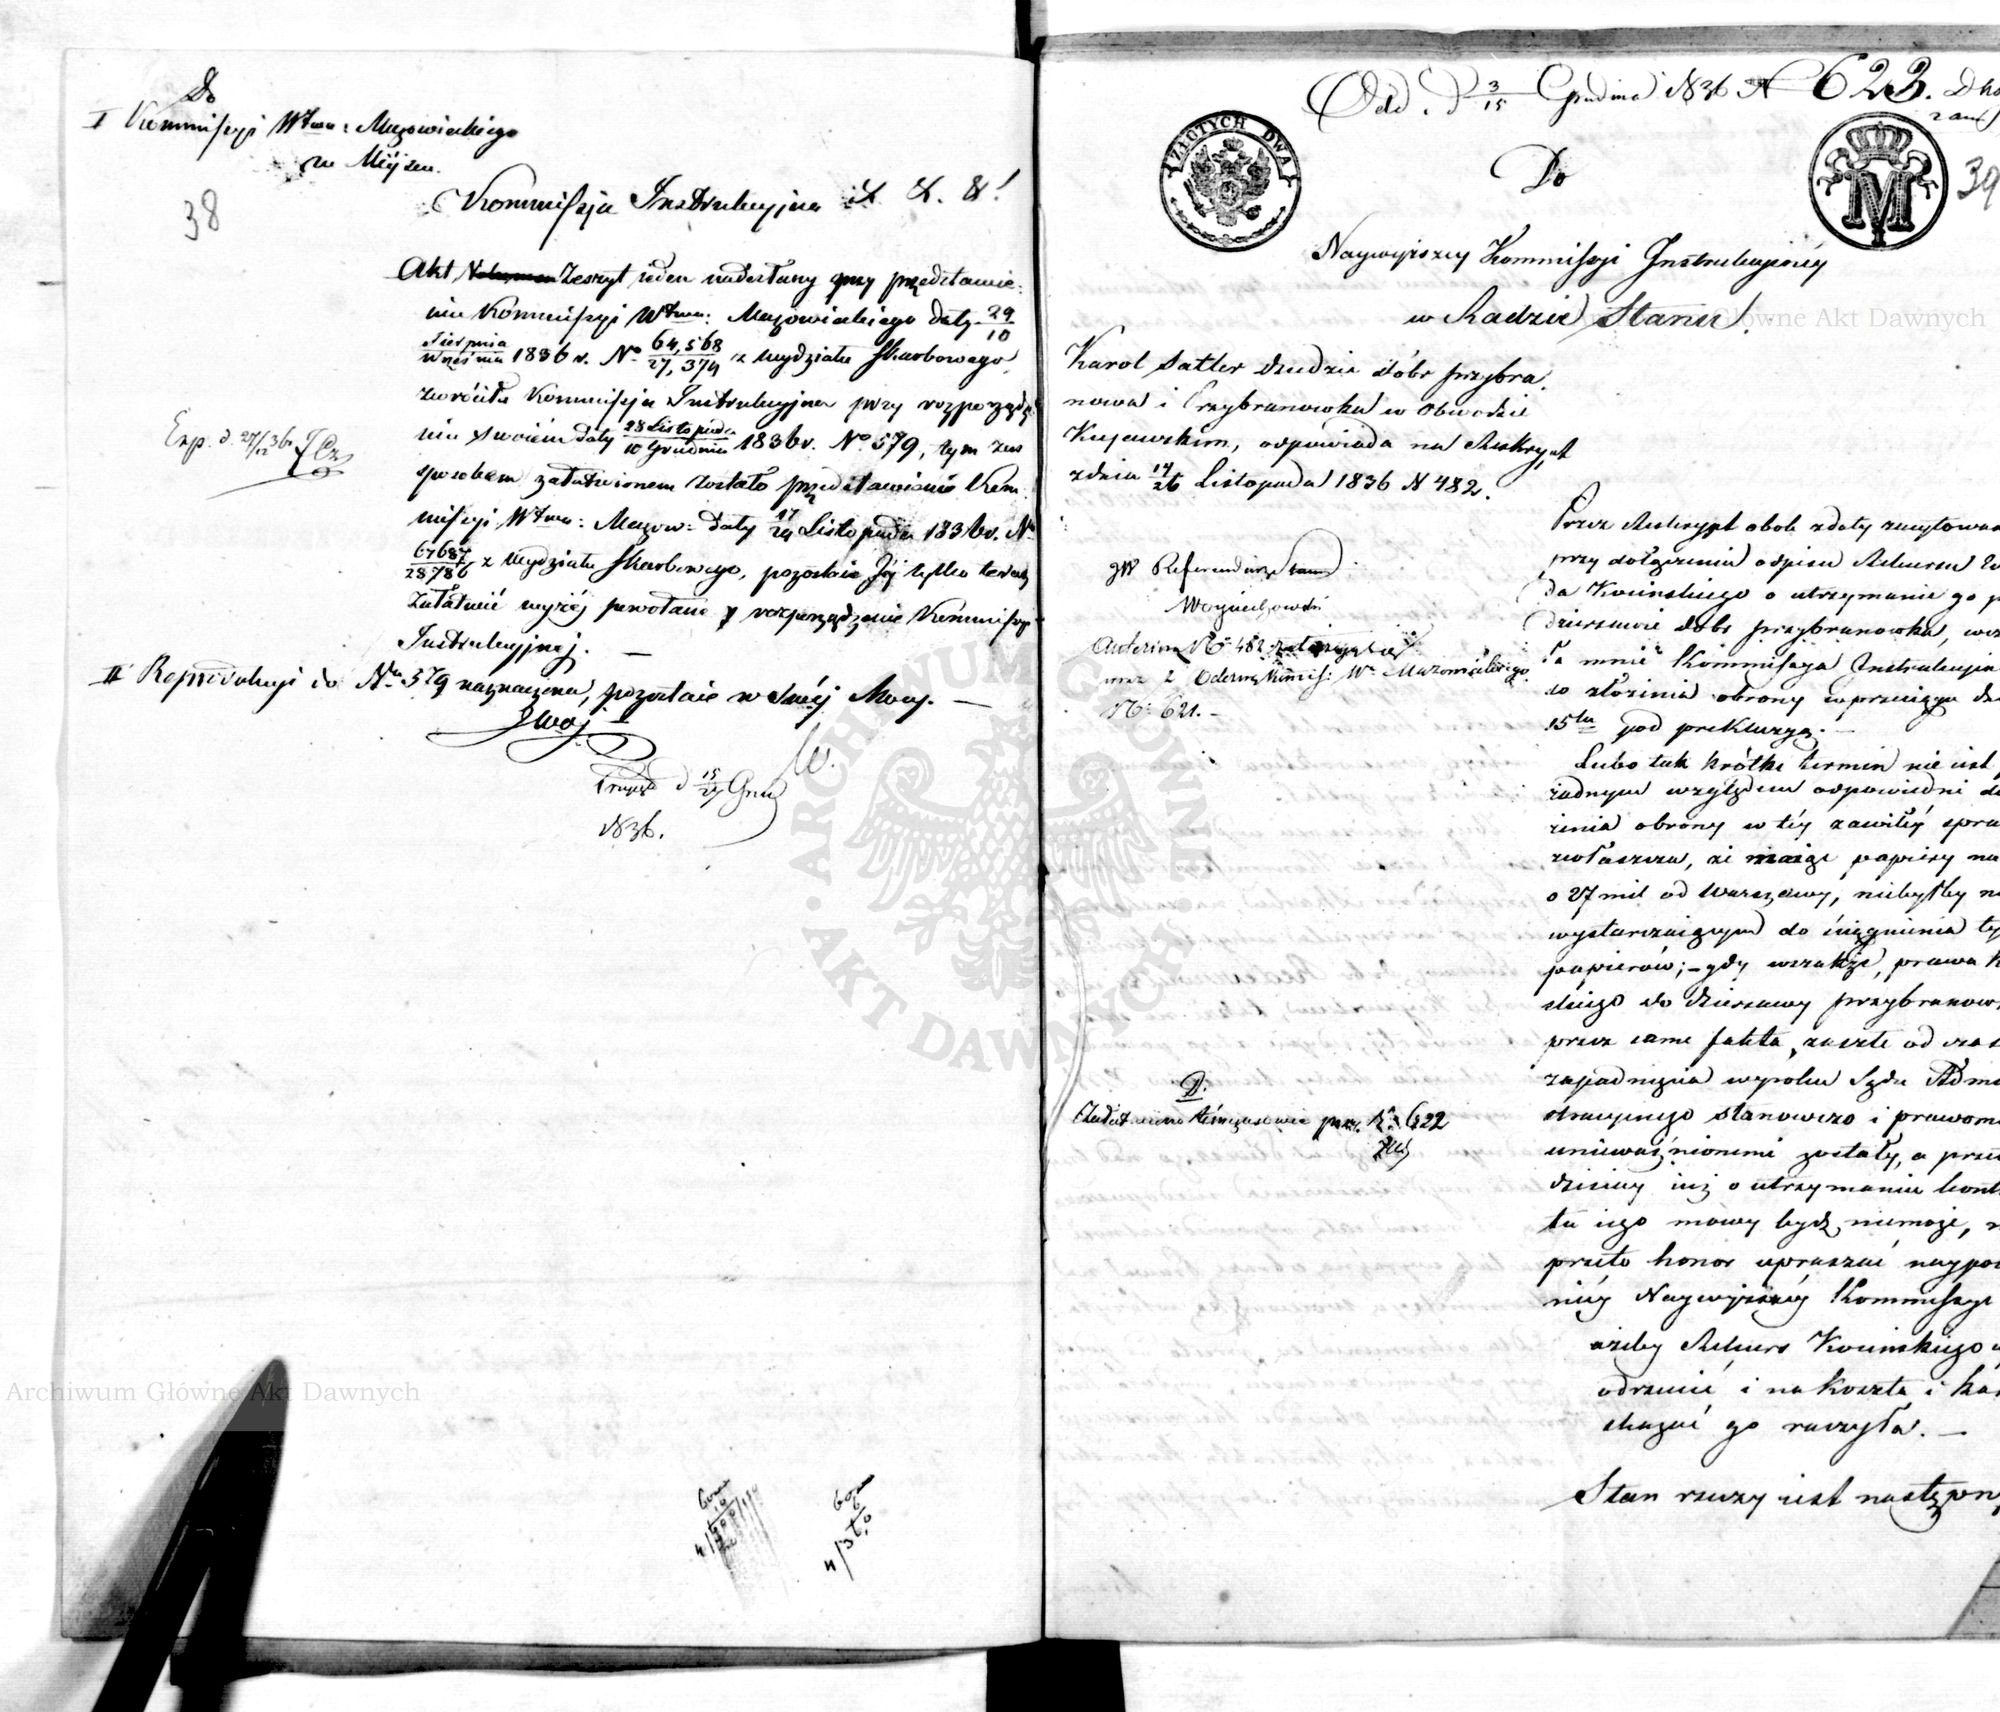 Do
I Kommissyi Wtwa: Mazowieckiego
w Mieyscu.
38
Kommissya Instrukcyjna &. &. &!
Akt Zeszyt ieden nadesłany przy przedstawie-
niu Kommissyi Wtwa: Mazowieckiego daty 29/10
Sierpnia/Września 1836 r. No 64,568/27,374 z wydziału Skarbowego,
zwróciła Kommissya Instrukcyjna przy rozporządze-
niu swoiem daty 28 Listopada/10 Grudnia 1836 r. No 579, tym zaś
Exp. d. 27/12 36
sposobem załatwionem zostało przedstawienie Kom-
missyi Wtwa: Mazow: daty 17/29 Listopada 1836 r. No
67687/28786 z wydziału Skarbowego, pozostaie Jéj tylko teraz
załatwić wyżéj powołane rozporządzenie Kommissyi
Instrukcyjnej. —
II Reproduksyi do Nru 579 naznaczona, pozostaie w swéj Mocy. —
W.
d 15/27 Gru
1836.
Odd. d 3/15 Grudnia 1836 N 623.
ZŁOTYCH DWA
M
39
Do
Naywyższey Kommissyi Instrukcyinéy
w Radzie Stanu.
Karol Satler dziedzic dóbr Przybra-
nowa i Przybranowka w Obwodzie
Kujawskim, odpowiada na Reskrypt
z dnia 14/26 Listopada 1836 N 482.
JW Referendarz Stanu
Woyciechowski
No 482
wraz z Odezwą Kommis: Wa Mazowieckiego
No 621. —
D.
Załatwiono łącznie przy No 622
Przez Reskrypt obok z daty zacytowa
przy dołączeniu odpisu Rekursu
da Kocinskiego o utrzymanie go
dzierzawie dóbr Przybranowka, wez
ła mnie Kommissya Instrukcyin
do złożenia obrony w przeciągu
15tu pod prekluzyą. —
Lubo tak krótki termin nie iest
żadnym względem odpowiedni do
żenia obrony w téy zawiłéy spra
zwłaszcza, że maiąc papiery na
o 27 mil od Warszawy, niebyłby
wystarczaiącym do ściągnienia
papierów; – gdy wszakże, prawa K
skiego do dzierzawy Przybranow
przez same fakta, zaszłe od czas
zapadnięcia wyroku Sądu Admi
stracyinego stanowczo i prawom
unieważnionemi zostały, a prze
dzisiay iuż o utrzymaniu kont
tu iego mowy bydź niemoże,
przeto honor upraszać naypo
niéy Naywyższéy Kommissyi
ażeby Rekurs Kocinskiego
odrzucić i na koszta i ka
skazać go raczyła. —
Stan rzeczy iest następu
Archiwum Główne Akt Dawnych
ARCHIWUM GŁÓWNE · AKT DAWNYCH ·
Archiwum Główne Akt Dawnych